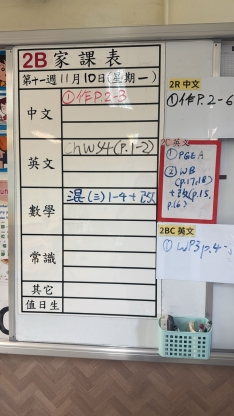 2B 家課表
第十一週 11月10日(星期一)
中文
①作P.2-3
英文
Ch W.S4 (P.1-2)
數學
混(三)1-4+改
常識
其它
值日生
2R 中文
①作P.2-6
2C 英文
① PGE A
② WB
(p.17,18)
+改(p.15,
p.16)
2BC 英文
① WP3 p.4-